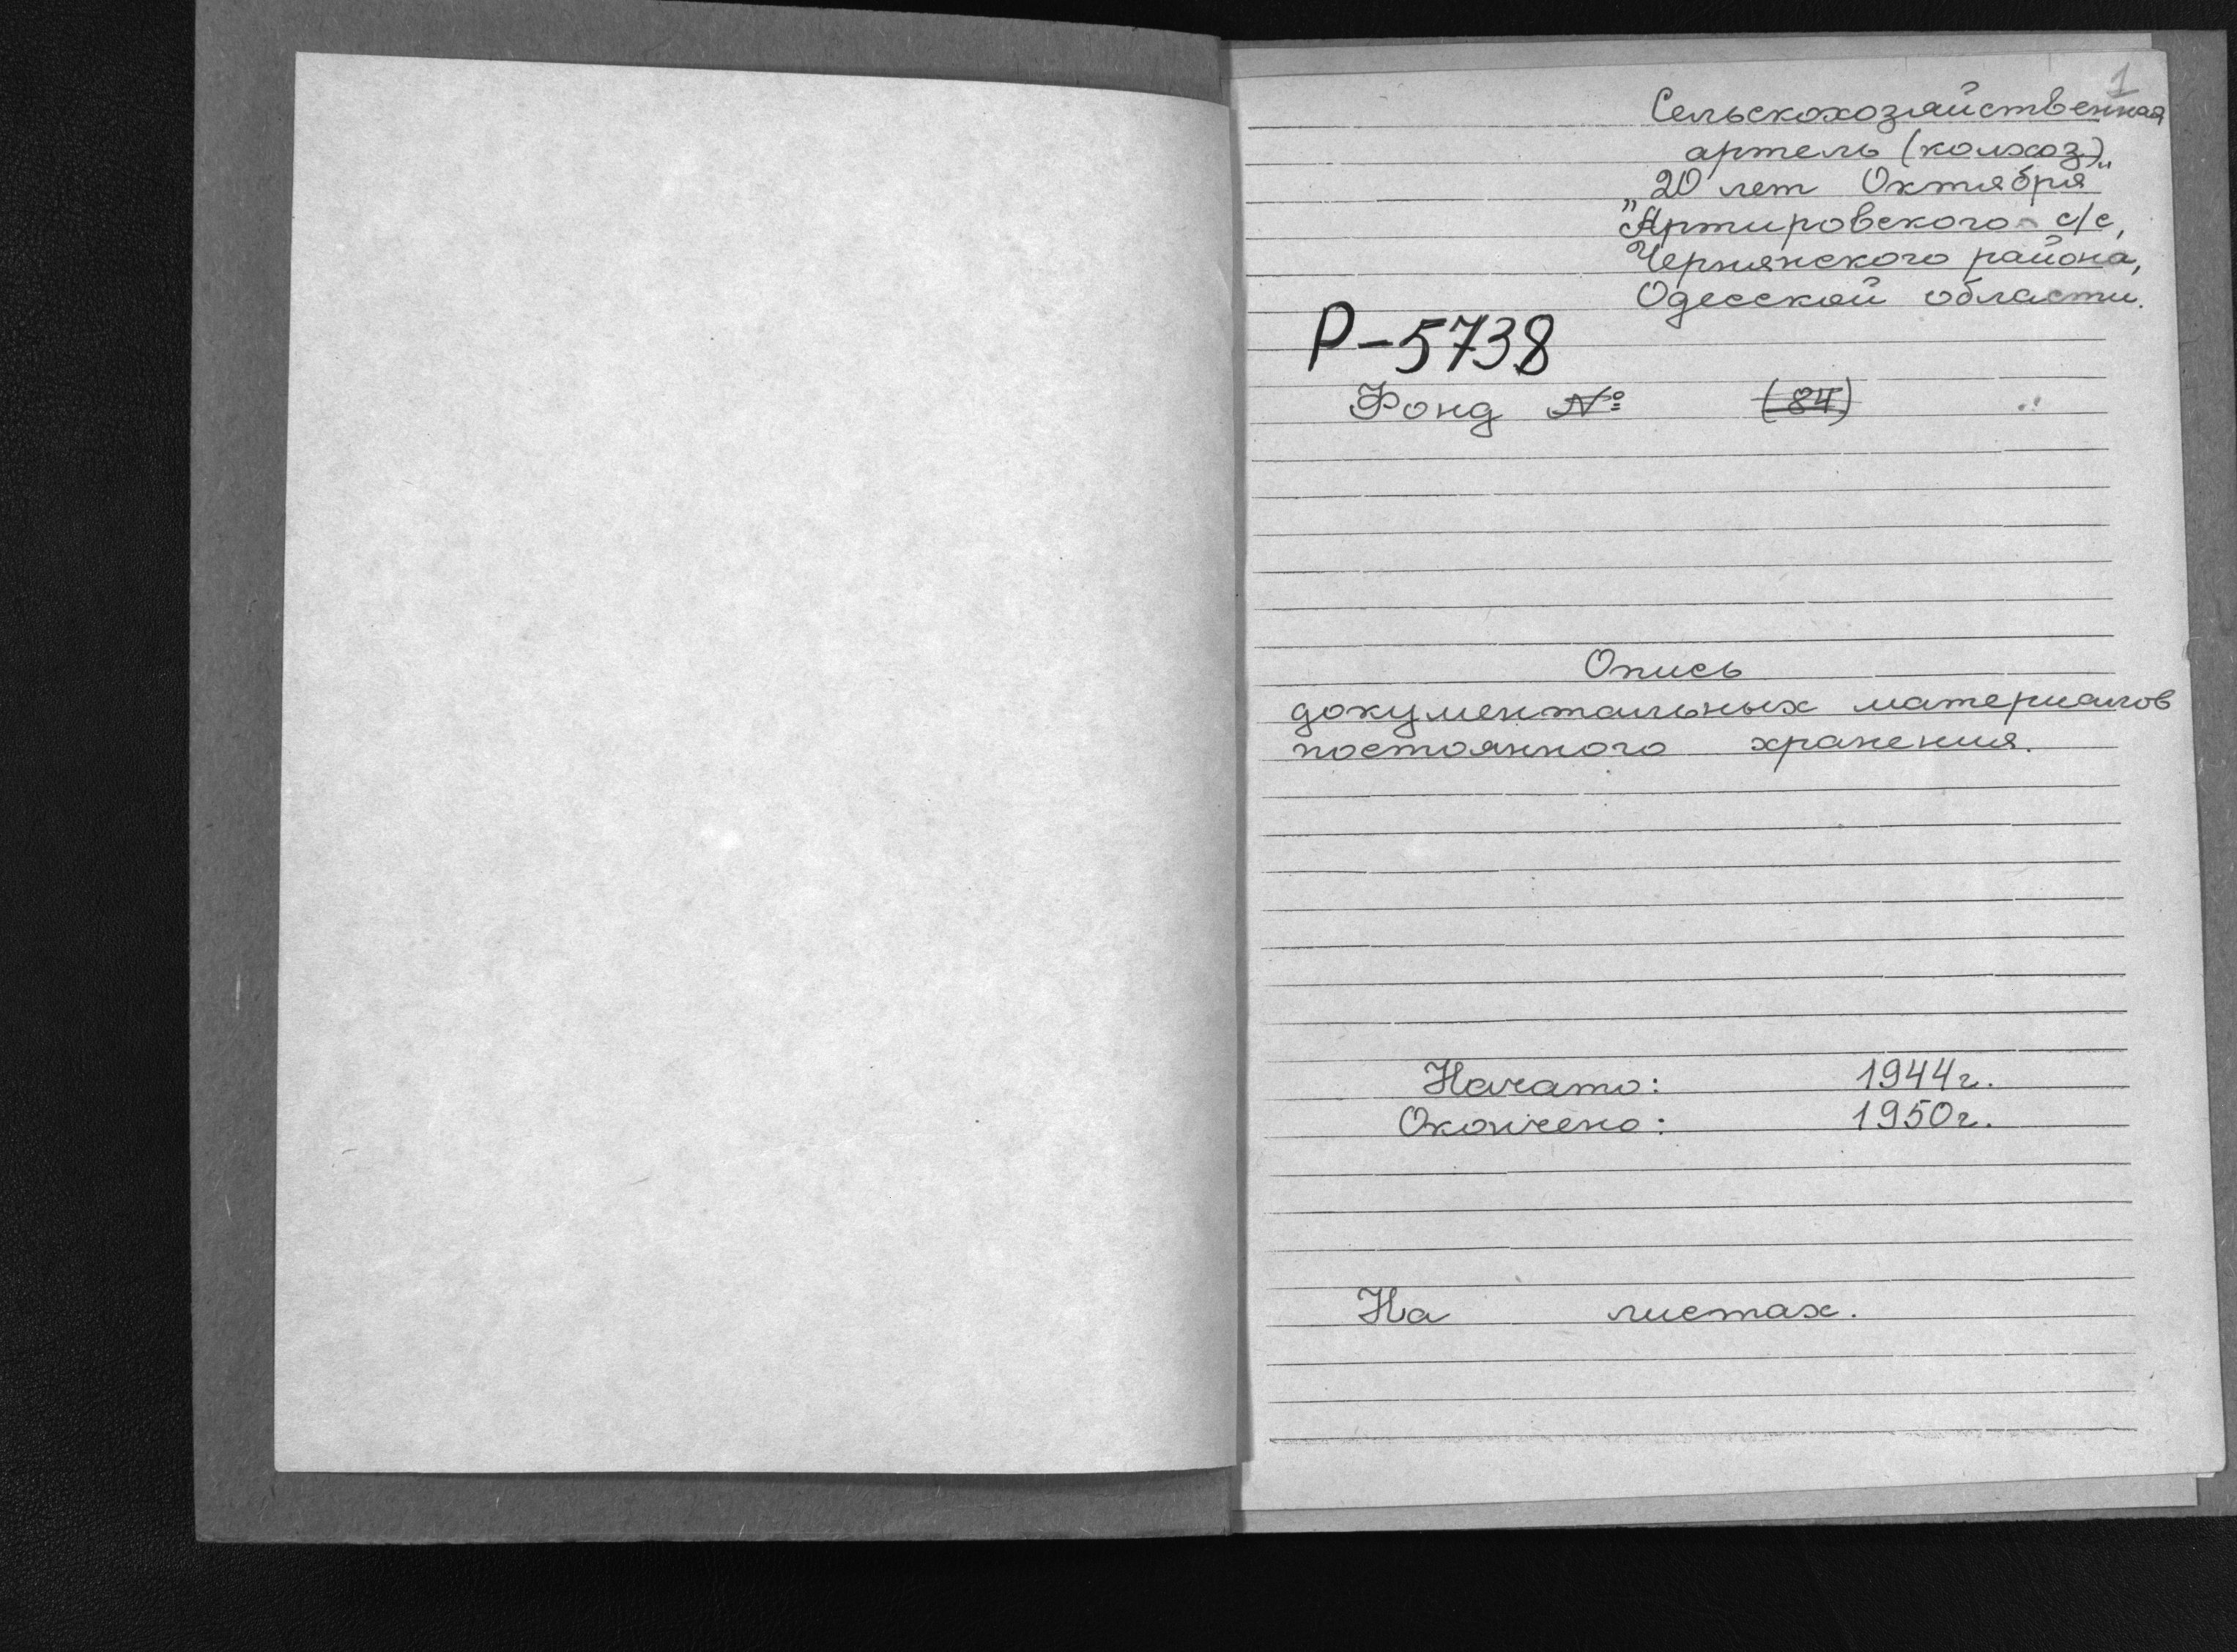 1
Сельскохозяйственная
артель (колхоз)
„20 лет Октября"
Артировского с/с,
Чернянского района,
Одесской области.
Р-5738
Фонд № (84)
Опись
документальных материалов
постоянного хранения.
Начато: 1944г.
Окончено: 1950г.
На листах.